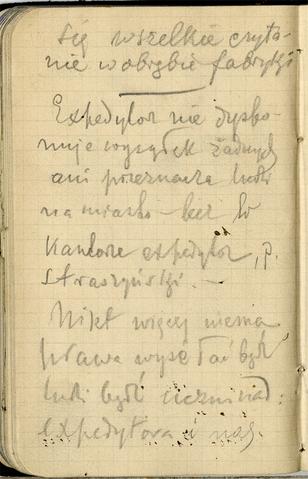 się wszelkie czyta-
nie w obrębie fabryki
Expedytor nie dyspo-
nuje wysyłek żadnych
ani przeznacza ludzi
na miasto – bez
Kantoru expedytor, p.
Straszyński. –
Nikt więcej niema
prawa wysełać bądź
ludzi bądź
expedytora i nas.